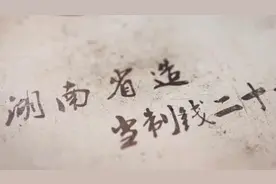 湖南省造
当制钱二十